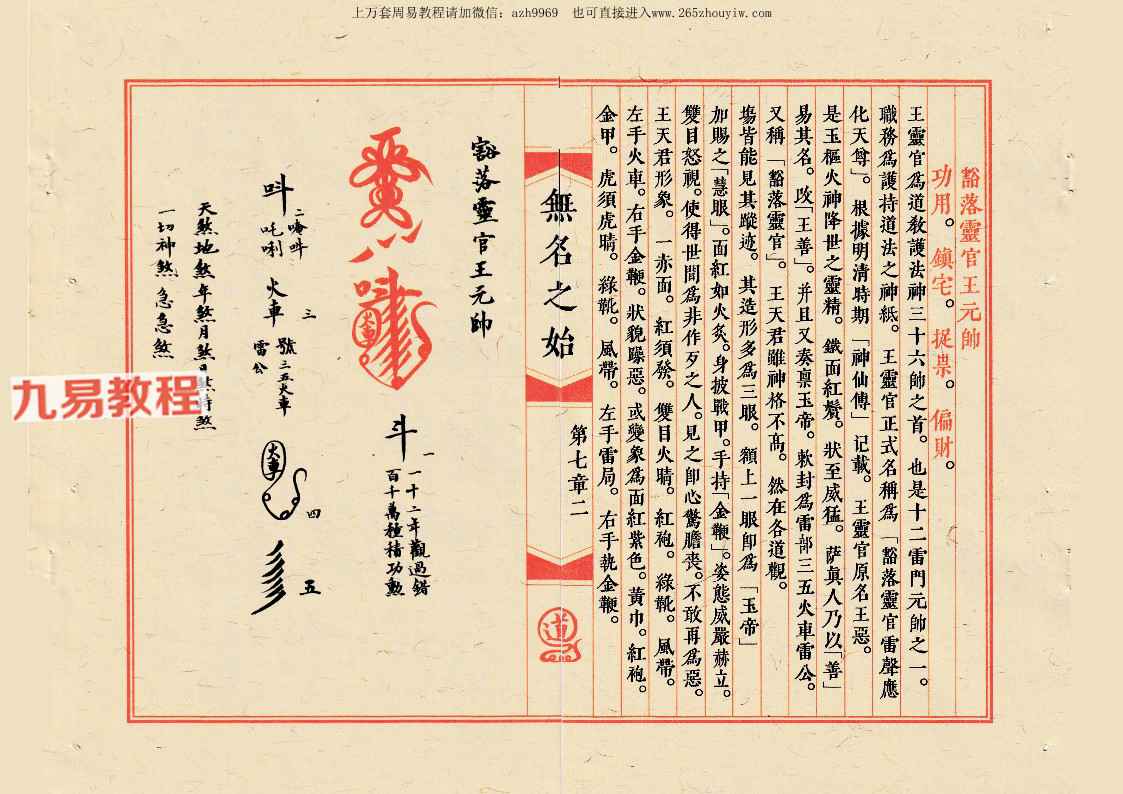 上万套周易教程请加微信：azh9969　也可直接进入www.265zhouyiw.com
豁落靈官王元帥
功用。鎮宅。捉祟。偏財。
王靈官爲道教護法神三十六帥之首。也是十二雷門元帥之一。
職務爲護持道法之神祇。王靈官正式名稱爲「豁落靈官雷聲應
化天尊」。根據明清時期「神仙傳」记載。王靈官原名王惡。
是玉樞火神降世之靈精。鐵面紅鬚。狀至威猛。薩真人乃以「善」
易其名。改「王善」。并且又奏禀玉帝。敕封爲雷部三五火車雷公。
又稱「豁落靈官」。王天君雖神格不髙。然在各道觀。
塲皆能見其蹤迹。其造形多爲三眼。額上一眼卽爲「玉帝」
加賜之「慧眼」。面紅如火炙。身披戰甲。手持「金鞭」。姿態威嚴赫立。
雙目怒視。使得世間爲非作歹之人。見之卽心驚膽喪。不敢再爲惡。
王天君形象。一赤面。紅須發。雙目火睛。紅袍。綠靴。風帶。
左手火車。右手金鞭。狀貌躁惡。或變象爲面紅紫色。黃巾。紅袍。
金甲。虎須虎睛。綠靴。風帶。左手雷局。右手執金鞭。
無名之始
第七章二
道
豁落靈官王元帥
火車
斗
一
一十二年觀過錯
百千萬種積功勲
吽
二唵吽
吒唎
火車
三
號三五火車
雷公
火車
四
五
天煞地煞年煞月煞日煞時煞
一切神煞急急煞
九易教程